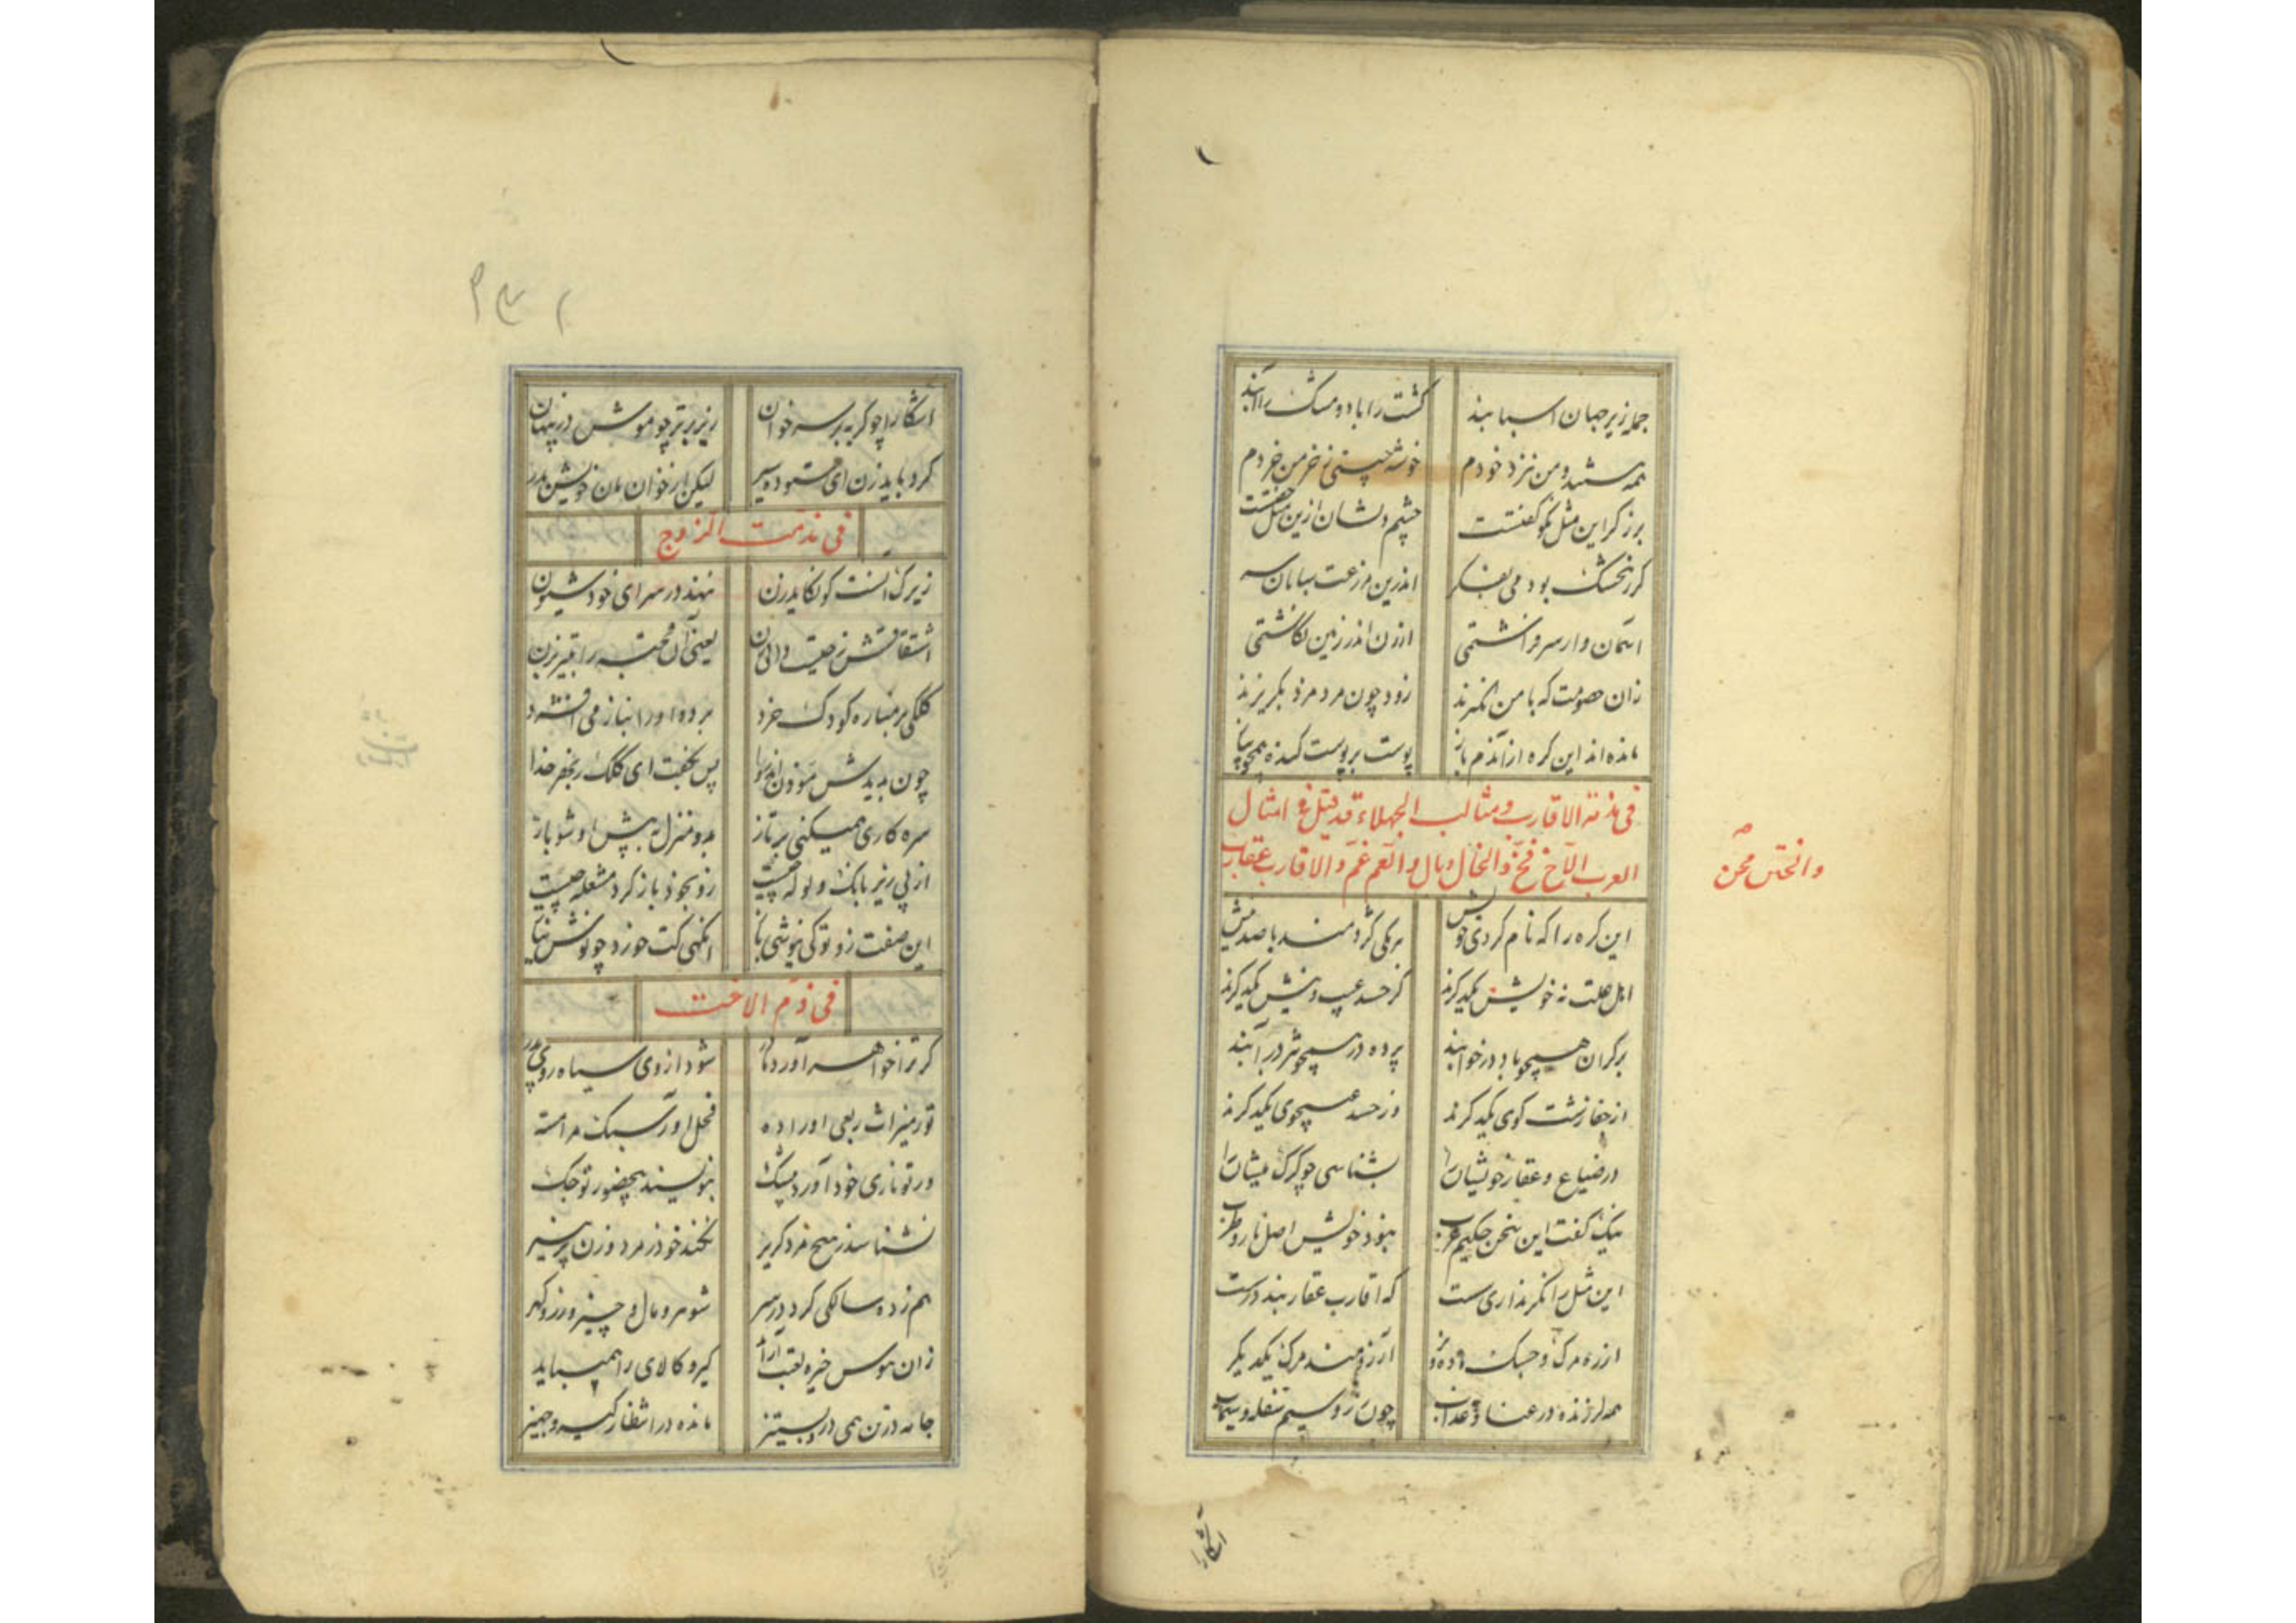 جمله زیر جهان اسبابند کشت را باد و مشک را آبند
همه هستند و من نزد خودم خوشه چینی ز خرمن خردم
برزکر این مثل نکو کفتست چشم دلشان ازین مثل خفتست
کر نخشک بودمی بفکر اندرین مزرعت بیابان سر
آسمان وار سر فراشتمی ارزن اندر زمین نکاشتمی
زان خصومت که با من انکیزند زود چون مرد مرد بکریزند
مانده اند این کره از آندم باز پوست بر پوست کنده همچو پیاز
فی مذمة الاقارب ومثالب الجهلاء قد قیل فی امثال
العرب الاخ فخ والخال وبال والعم غم والاقارب عقارب
والختن محن
این کره را که نام کردی خویش هر یکی کژدمند با صد نیش
اهل علت نه خویش یکدکرند کز حسد عیب و نیش یکدکرند
بر کران همچو باد در خوابند پرده در همچو تره در آبند
از جفا زشت کوی یکدکرند وز حسد عیبجوی یکدکرند
در ضیاع و عقار خویشان را بشناسی چو کرک میشان را
نیک کفت این سخن حکیم عرب نبود خویش اصل ناز و طرب
این مثل را نکر نداری سست که اقارب عقاربند درست
از زه مرک و جسک ماده و نر آرزومند مرک یکدیکر
همه لرزنده در عنا و عذاب چون زر و سیم سفله و سیماب
آشکارا
آشکارا چو کربه بر سر خوان زیر بر تر چو موش در پنهان
کرد باید زن ای ستوده سیر لیکن از خوان و مان خویش بدر
فی مذمت التزوج
زیرک آنست کو نکاید زن ننهد در سرای خود شیون
اشتقاقش ز چیست دانی زن یعنی آن قحبه را بتیر بزن
کنکی بر مناره کودک خرد برده او را بناز می افشرد
چون بدیدش مؤذن اندروا پس بکفت ای کنک ز بهر خدا
سره کاری همیکنی برتاز به دو منزل به پیش او شو باز
از پی ریز بانک و ولوله چیست رو بخود باز کرد مشعله چیست
این صفت زو تو کی نیوشی باز آنکهی کت خورد چو نوش نیاز
فی ذم الاخت
کر ترا خواهر آورد مادر شود از وی سیاه روی پدر
تو ز میراث ربعی او را ده فحل او را سبک در آر بده
ور تو ناری خود آورد بیشک بنویسند بیحضور تو چک
نشناسد ز هیچ مرد کریز نکند خود ز مرد و زن پرهیز
هم ز ده سالکی کرد در سر شوهر و مال و چیز و زر و کهر
زان هوس خیره لعبت آراید کیر و کالای را همی باید
جامه در تن همی درد بستیز مانده در انتظار کیر و جهیز